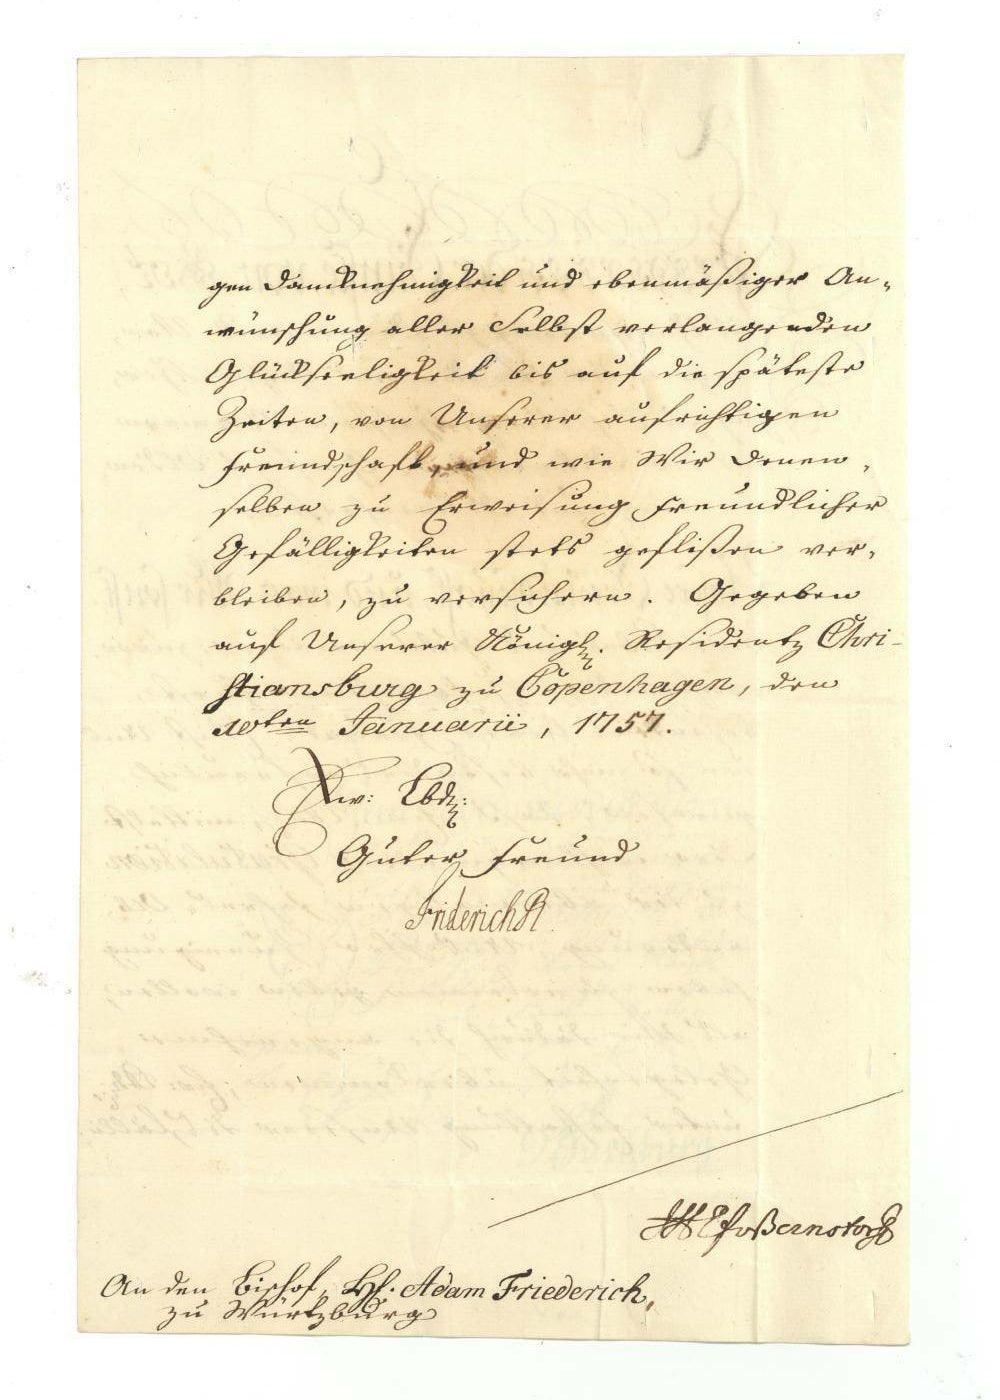 gen Dancknehmigkeit und ebenmäßiger An-
wünschung aller Selbst verlangenden
Glückseeligkeit bis auf die späteste
Zeiten, von Unserer aufrichtigen
Freundschafft, und wie Wir Denen-
selben zu Erweisung freundlicher
Gefälligkeiten stets geflißen ver-
bleiben, zu versichern. Gegeben
auf Unserer Königl. Residentz Chri-
stiansburg zu Copenhagen, den
10ten Januarii, 1757.
Ew: Lbd:
Guter Freund
Friderich R
JHE v Bernstorff
An den Bischof, H. Adam Friederich,
zu Würtzburg